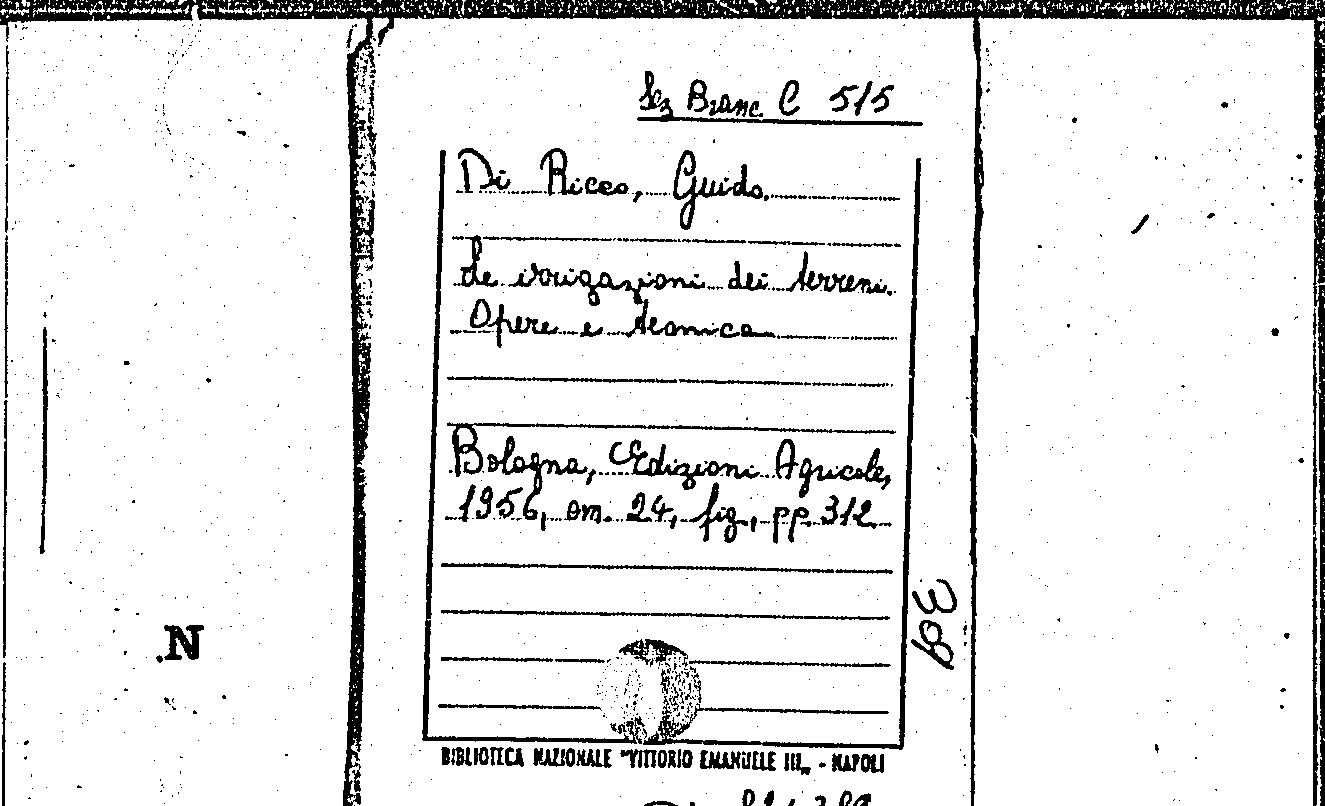 Sez Branc. C 5/5
Di Ricco, Guido.
Le irrigazioni dei terreni.
Opere e tecnica
Bologna, Edizioni Agricole,
1956, cm. 24, fig., pp. 312
309
.N
BIBLIOTECA NAZIONALE "VITTORIO EMANUELE III„ - NAPOLI